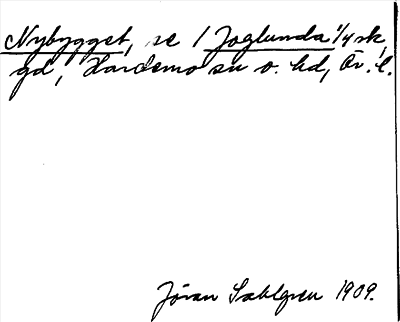 Nybygget, se 1 Joglunda 1/4 sk,
gd, Hardemo sn o. hd, Ör. l.
Jöran Sahlgren 1909.